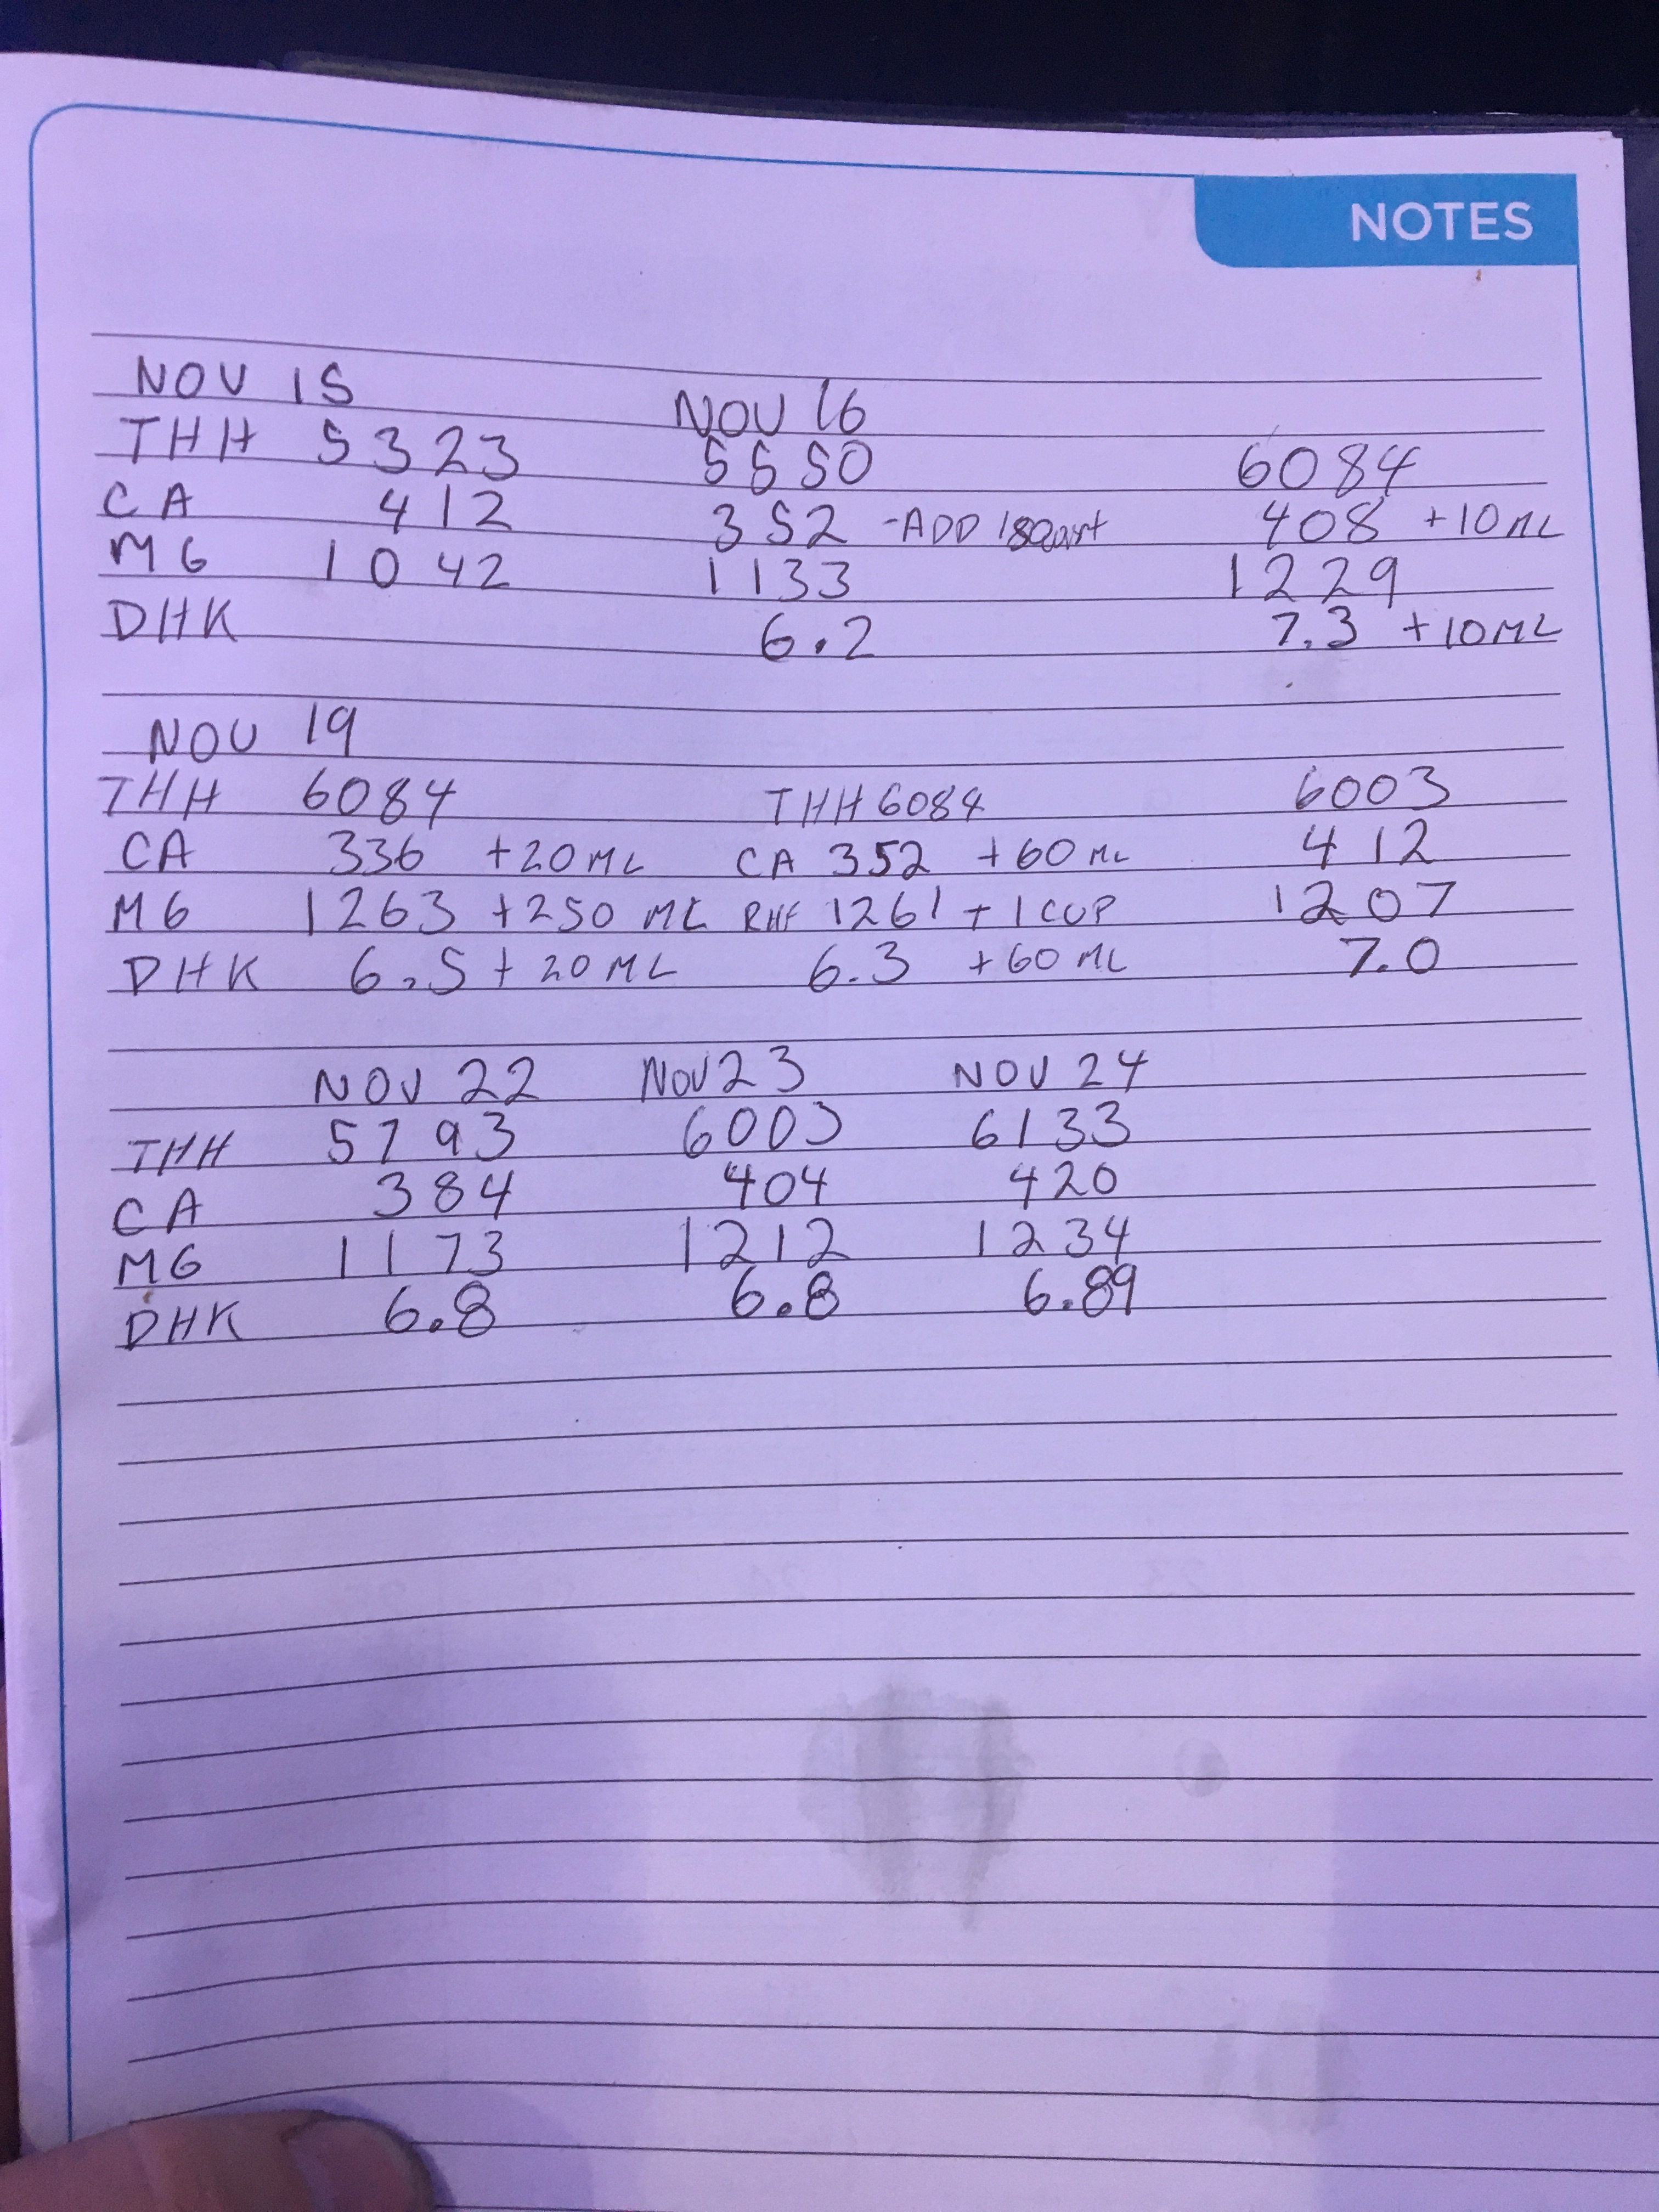 NOTES
NOV 15 NOV 16
THH 5323 5550 6084
CA 412 352 -ADD 408 +10ML
MG 1042 1133 1229
DHK 6.2 7.3 +10ML
NOV 19
THH 6084 THH 6084 6003
CA 336 +20ML CA 352 +60ML 412
MG 1263 +250 ML 1261 + 1CUP 1207
DHK 6.5 + 20ML 6.3 +60ML 7.0
NOV 22 NOV 23 NOV 24
THH 5793 6003 6133
CA 384 404 420
MG 1173 1212 1234
DHK 6.8 6.8 6.89